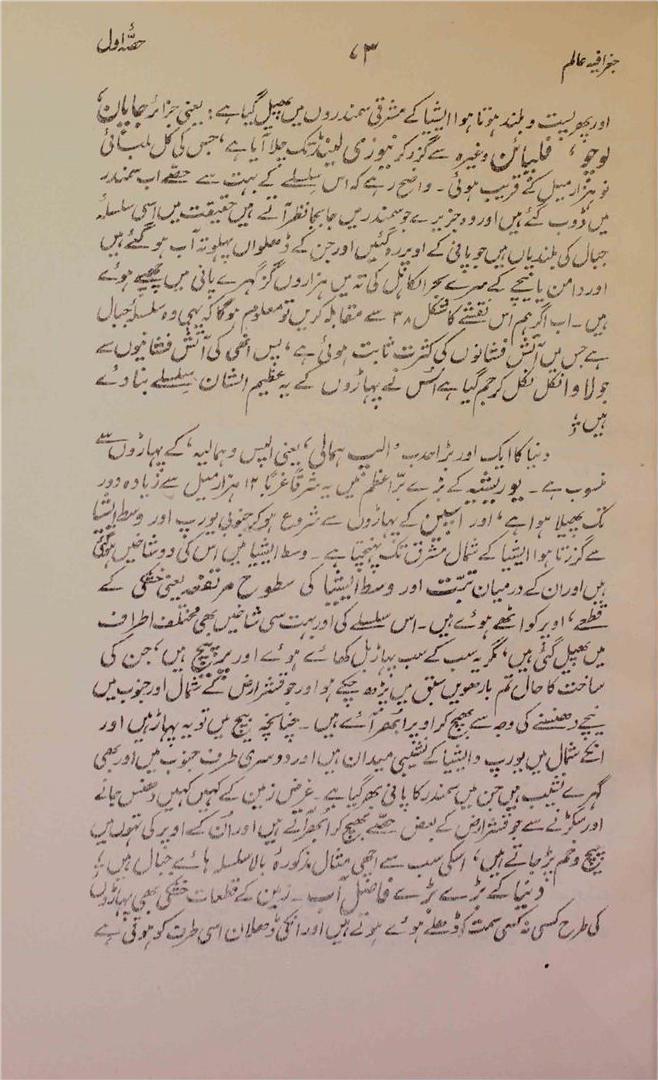 جغرافیہ عالم
۷۳
حصّۂ اول
اور پھر پست و بلند ہوتا ہوا ایشیا کے مشرقی سمندروں میں پھیل گیا ہے؛ یعنی جزائر جاپان،
لوچو، فلپائن وغیرہ سے گزر کر نیوزی لینڈ تک چلا آیا ہے، جس کی کل لمبائی
نو ہزار میل کے قریب ہوئی۔ واضح رہے کہ اس سلسلے کے بہت سے حصے اب سمندر
میں ڈوب گئے ہیں اور وہ جزیرے جو سمندر میں جابجا نظر آتے ہیں حقیقت میں اسی سلسلۂ
جبال کی بلندیاں ہیں جو پانی کے اوپر رہ گئیں اور جن کے ڈھلواں پہلو تہ آب ہو گئے ہیں
اور دامن یا نیچے کے سرے بحرالکاہل کی تہ میں ہزاروں گز گہرے پانی میں چھپے ہوئے
ہیں۔ اب اگر ہم اس نقشے کا شکل ۳۸ سے مقابلہ کریں تو معلوم ہوگا کہ یہی وہ سلسلۂ جبال
ہے جس میں آتش فشانوں کی کثرت ثابت ہوئی ہے، پس انھی کی آتش فشانیوں سے
جو لاوا نکل نکل کر جم گیا ہے اُس نے پہاڑوں کے یہ عظیم الشان سلسلے بنا دئے
ہیں؛
دنیا کا ایک اور بڑا حدب، الپ ہمالی، یعنی الپس و ہمالیہ، کے پہاڑوں سے
منسوب ہے۔ یوریشیہ کے بڑے برّاعظم میں یہ شرقاً غرباً ۱۲ ہزار میل سے زیادہ دور
تک پھیلا ہوا ہے، اور اسپین کے پہاڑوں سے شروع ہو کر جنوبی یورپ اور وسط ایشیا
سے گزرتا ہوا ایشیا کے شمال مشرق تک پہنچتا ہے۔ وسط ایشیا میں اس کی دو شاخیں ہو گئی
ہیں اور ان کے درمیان تبّت اور وسط ایشیا کی سطوح مرتفعہ یعنی خشکی کے
قطعے، اوپر کو اٹھے ہوئے ہیں۔ اس سلسلے کی اور بہت سی شاخیں بھی مختلف اطراف
میں پھیل گئی ہیں، مگر یہ سب کے سب پہاڑ بل کھائے ہوئے اور پر پیچ ہیں، جن کی
ساخت کا حال تم بارھویں سبق میں پڑھ چکے ہو اور جو قشرارض کے شمال اور جنوب میں
نیچے دھنسنے کی وجہ سے بھچ کر اوپر ابھر آئے ہیں۔ چنانچہ بیچ میں تو یہ پہاڑ ہیں اور
انکے شمال میں یورپ و ایشیا کے نشیبی میدان ہیں اور دوسری طرف جنوب میں اور بھی
گہرے نشیب ہیں جن میں سمندر کا پانی بھر گیا ہے۔ غرض زمین کے کہیں کہیں دھنس جانے
اور سکڑنے سے جو قشرارض کے بعض حصے بھچ کر ابھر آتے ہیں اور اُن کے اوپر کی تہوں میں
پیچ و خم پڑ جاتے ہیں، اسکی سب سے اچھی مثال مذکورۂ بالا سلسلہ ہائے جبال ہیں؛
دنیا کے بڑے بڑے فاضل آب۔ زمین کے قطعات خشکی بھی پہاڑوں
کی طرح کسی نہ کسی سمت کو ڈھلے ہوئے ہوتے ہیں اور انکی ڈھلان اسی طرف کو ہوتی ہے